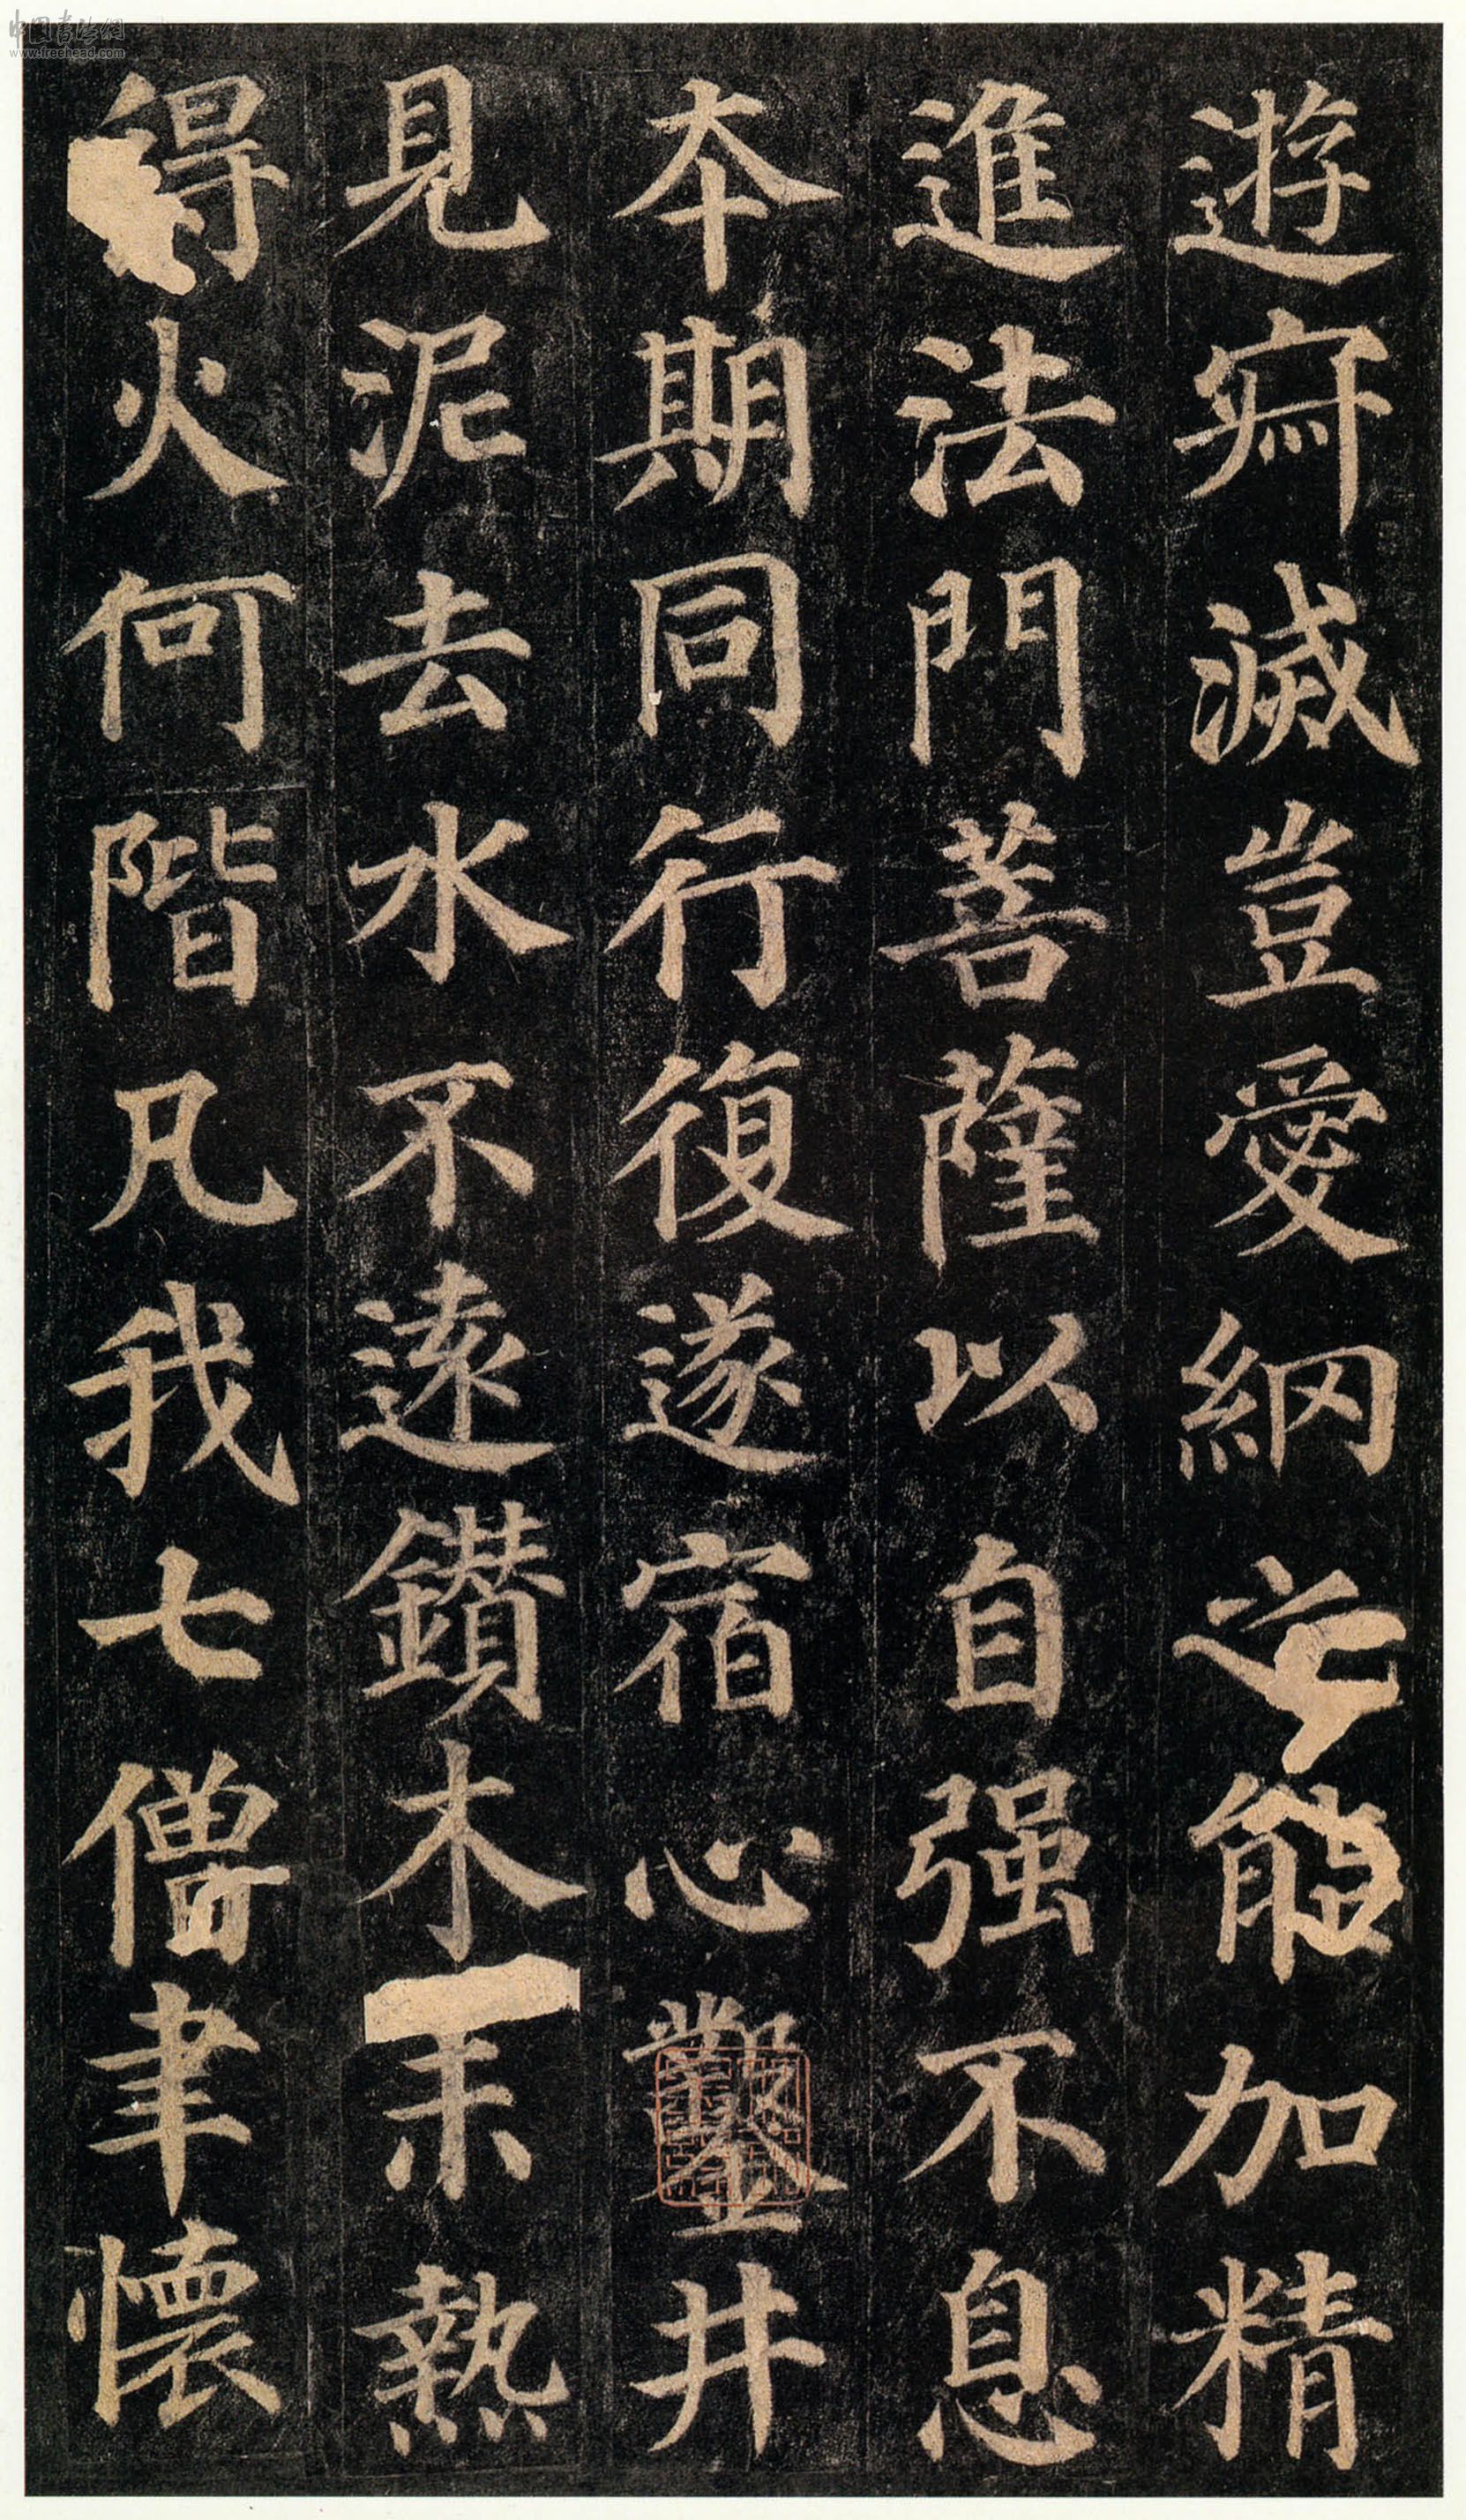 遊寂滅豈愛網之能加精
進法門菩薩以自强不息
本期同行復遂宿心鑿井
見泥去水不遠鑽木未熱
得火何階凡我七僧聿懷
中国书法網
www.freehead.com